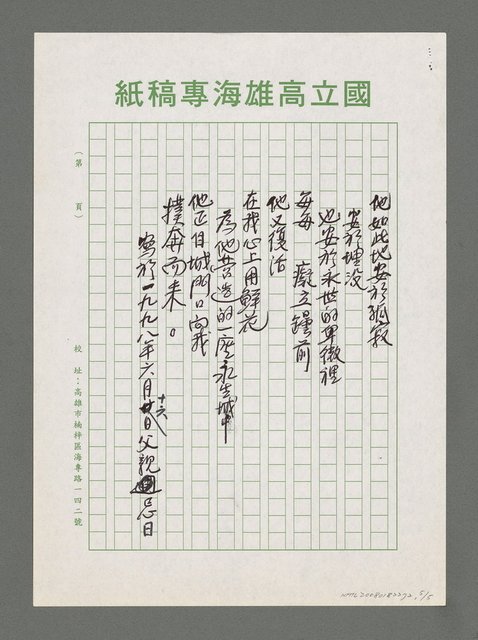 國立高雄海專稿紙
(第　頁)
他如此地安於孤寂
安於埋沒
也安於永世的卑微裡
每每　癡立鐘前
他又復活
在我心上用鮮花
為他營造的一座永生城中
他正自城門口向我
撲奔而來。
寫於一九九八年六月廿十六日父親忌日
校　址：高雄市楠梓區海專路一四二號
NMTL20080182272, 5/5